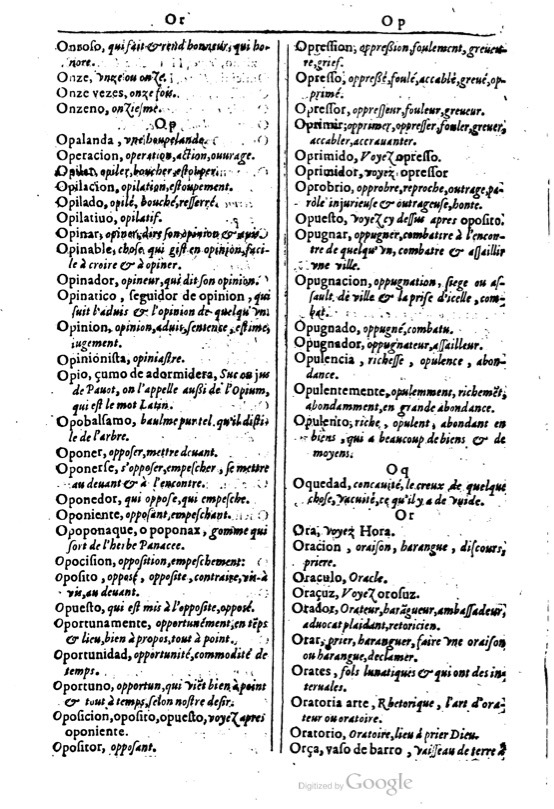 Or
Onroso, qui fait & rend honneur, qui ho-
nore.
Onze, vnze ou onze.
Onze vezes, onze fois.
Onzeno, onziesme.
Op
Opalanda, vne houpelande.
Operacion, operation, action, ouurage.
Opilar, opiler, boucher, estouper.
Opilacion, opilation, estoupement.
Opilado, opilé, bouché, reserré.
Opilatiuo, opilatif.
Opinar, opiner, dire son opinion & auis.
Opinable, chose qui gist en opinion, faci-
le à croire & à opiner.
Opinador, opineur, qui dit son opinion.
Opinatico, seguidor de opinion, qui
suit l'aduis & l'opinion de quelqu'vn.
Opinion, opinion, aduis, sentence, estime,
iugement.
Opinionista, opiniastre.
Opio, çumo de adormidera, Suc ou jus
de Pauot, on l'appelle außi de l'Opium,
qui est le mot Latin.
Opobalsamo, baulme pur tel qu'il disti-
le de l'arbre.
Oponer, opposer, mettre deuant.
Oponerse, s'opposer, empescher, se mettre
au deuant & à l'encontre.
Oponedor, qui oppose, qui empesche.
Oponiente, opposant, empeschant.
Opoponaque, o poponax, gomme qui
sort de l'herbe Panacee.
Opocision, opposition, empeschement:
Oposito, opposé, opposite, contraire, vis-à
vis, au deuant.
Opuesto, qui est mis à l'opposite, opposé.
Oportunamente, opportunément, en tẽps
& lieu, bien à propos, tout à point.
Oportunidad, opportunité, commodité de
temps.
Oportuno, opportun, qui viẽt bien à point
& tout à temps, selon nostre desir.
Oposicion, oposito, opuesto, voyez apres
oponiente.
Opositor, opposant.
Op
Opression, oppreßion, foulement, greueu-
re, grief.
Opresso, oppreßé, foulé, accablé, greué, op-
primé.
Opressor, oppresseur, fouleur, greueur.
Oprimir, opprimer, oppresser, fouler, greuer,
accabler, accrauanter.
Oprimido, Voyez opresso.
Oprimidor, voyez opressor
Oprobrio, opprobre, reproche, outrage, pa-
role iniurieuse & outrageuse, honte.
Opuesto, voyez cy dessus apres oposito.
Opugnar, oppugner, combattre à l'encon-
tre de quelqu'vn, combatre & assaillir
vne ville.
Opugnacion, oppugnation, siege ou as-
sault de ville & la prise d'icelle, com-
bat.
Opugnado, oppugné, combatu.
Opugnador, oppugnateur, assailleur.
Opulencia, richesse, opulence, abon-
dance.
Opulentemente, opulemment, richemẽt,
abondamment, en grande abondance.
Opulento, riche, opulent, abondant en
biens, qui a beaucoup de biens & de
moyens.
Oq
Oquedad, concauité, le creux de quelque
chose, vacuité, ce qu'il y a de vuide.
Or
Ora, voyez Hora.
Oracion, oraison, harangue, discours,
priere.
Oraculo, Oracle.
Oraçuz, Voyez orosuz.
Orador, Orateur, harãgueur, ambassadeur,
aduocat plaidant, retoricien.
Orar, prier, haranguer, faire vne oraison
ou harangue, declamer.
Orates, fols lunatiques & qui ont des in
terualles.
Oratoria arte, Rhetorique, l'art d'ora-
teur ou oratoire.
Oratorio, Oratoire, lieu à prier Dieu.
Orça, vaso de barro, vaisseau de terre à
Digitized by Google